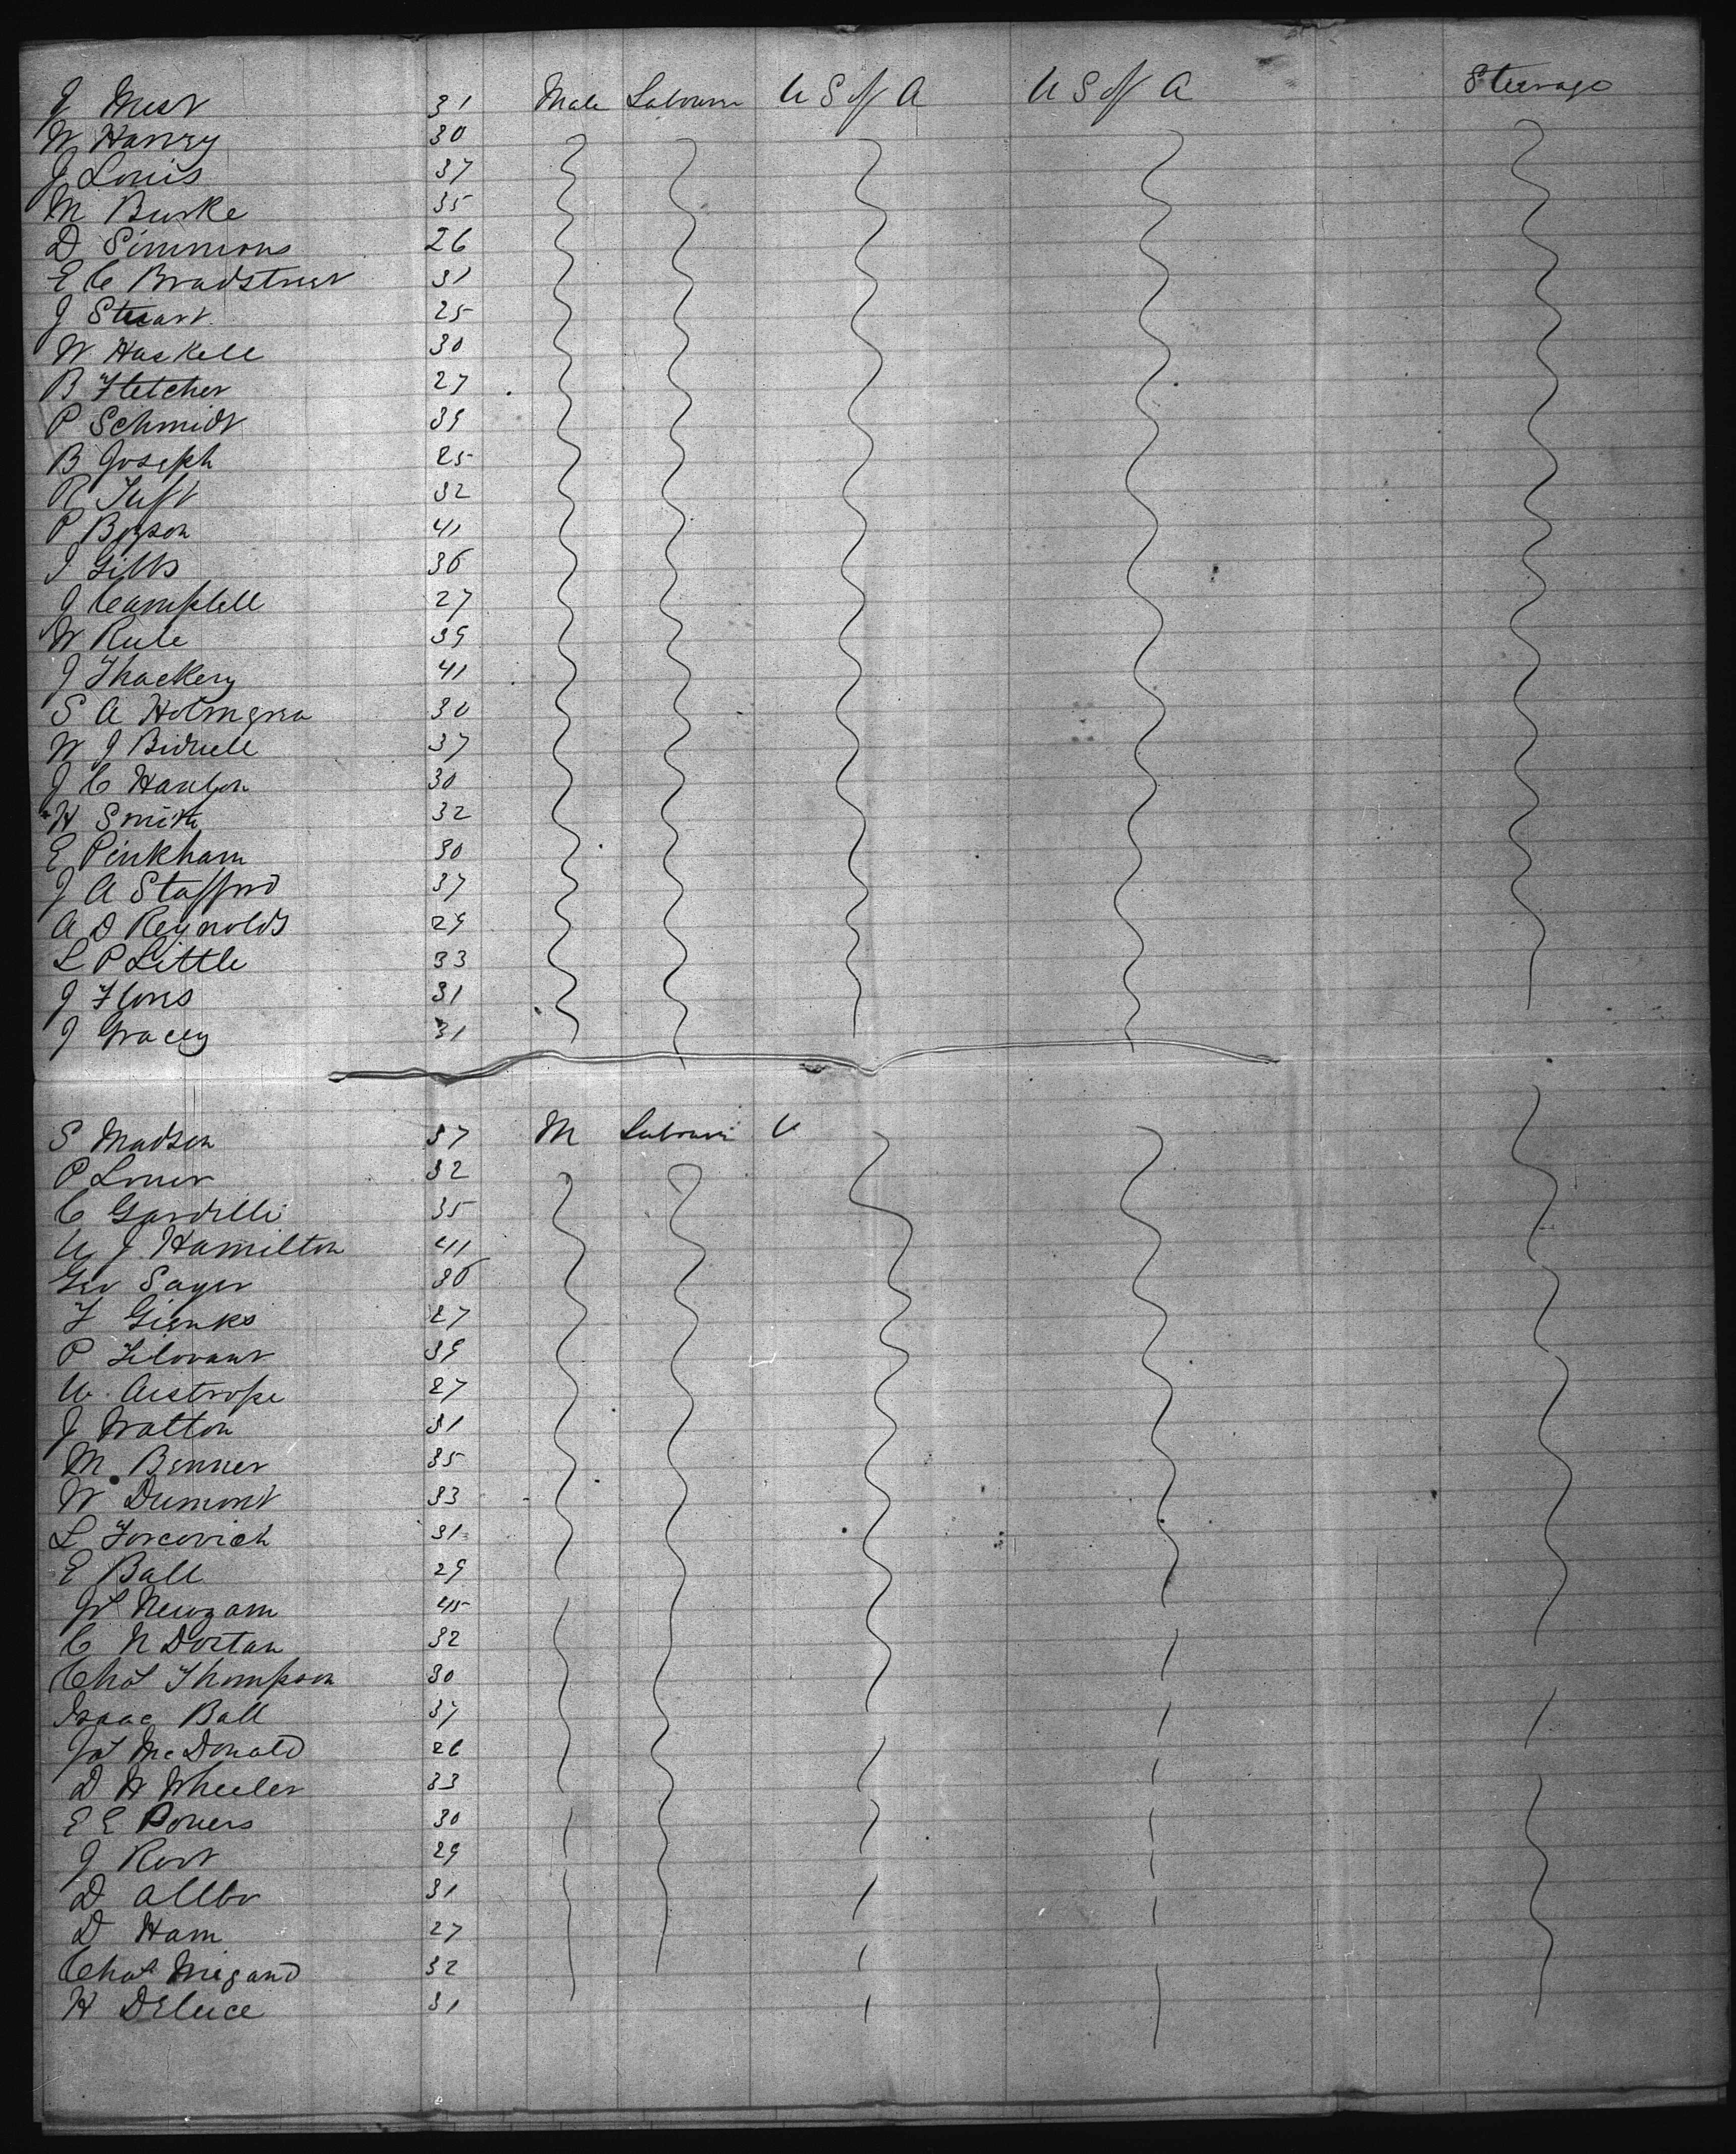 J West 31 Male Labourer U S of A U S of A Steerage
W Harvey 30
J Louis 37
M Burke 35
D Simmons 26
E C Bradstreet 31
J Stuart 25
W Haskell 30
B Fletcher 27
P Schmidt 39
B Joseph 25
R Tuft 32
P Boyson 41
J Gibbs 36
J Campbell 27
W Rule 39
J Thackery 41
S A Holmgren 30
W J Bidwell 37
J C Hanlyon 30
H Smith 32
E Pinkham 30
J A Stafford 37
A D Reynolds 29
L P Little 33
J Flores 31
J Gracey 31
S Madsen 37 M Labourer U
P Loner 32
C Gardelli 35
W J Hamilton 41
Geo Sayer 36
F Gienks 27
P 39
W Aistrope 27
J Watton 31
M Benner 35
W Dumont 33
L Forcovich 31
E Ball 29
Jas Newzam 45
C N Dortan 32
Chas Thompson 30
Isaac Ball 37
Jas McDonald 26
D W Wheeler 33
E E Powers 30
J Root 29
D Allbo 31
D Ham 27
Chas Wiegand 32
H Deluce 31